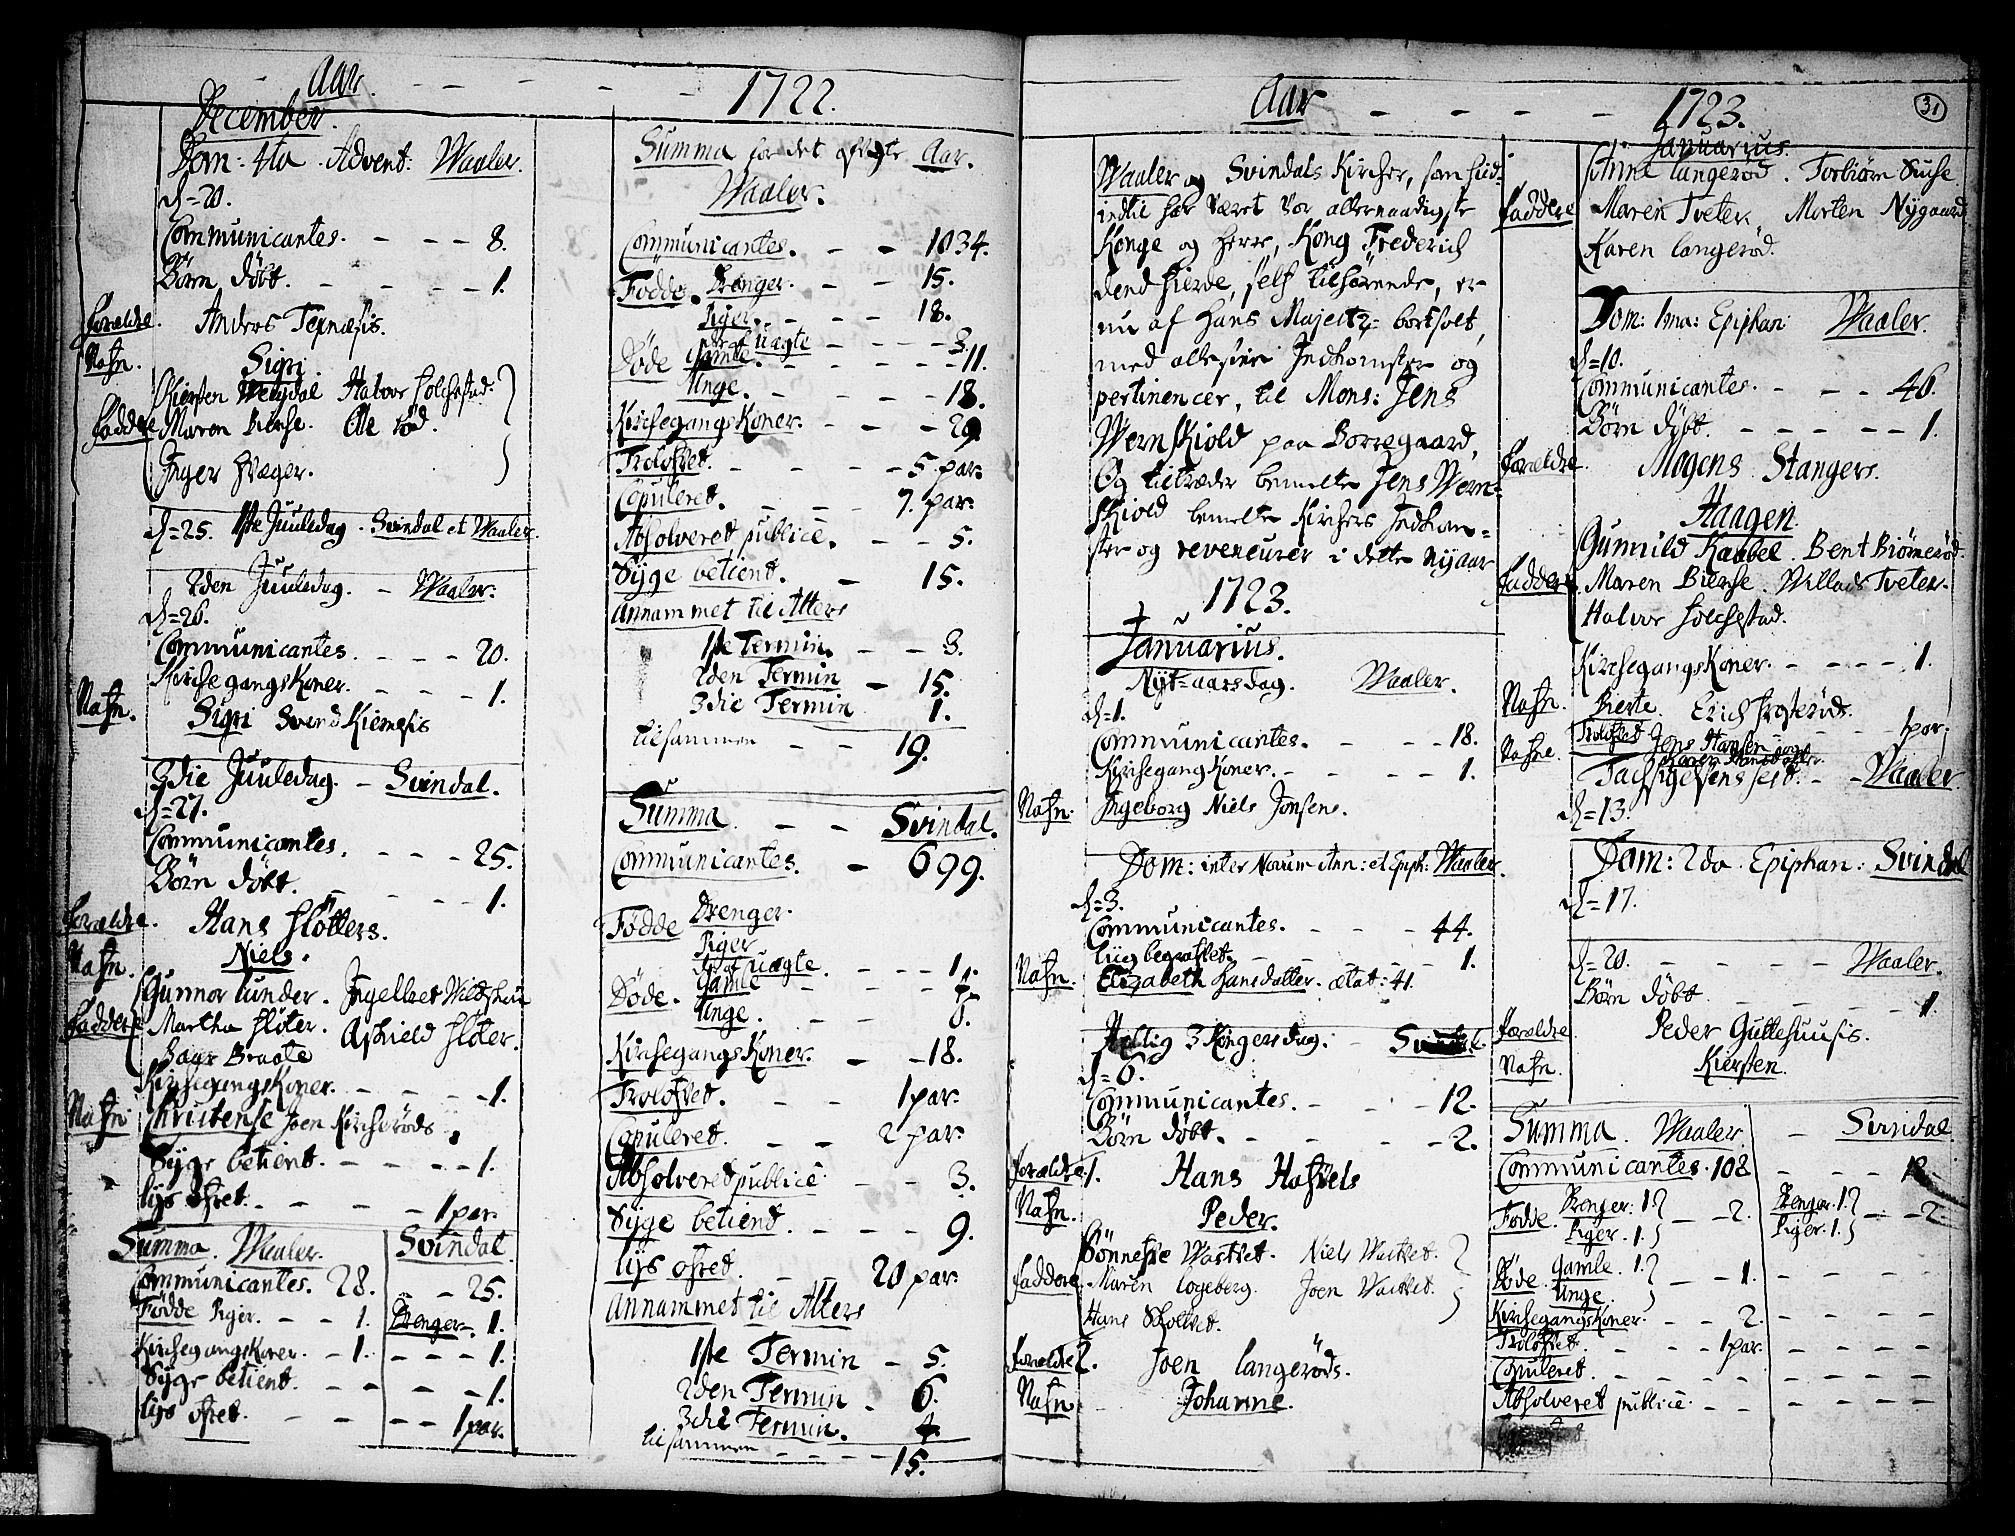 Aar. - - - - 1722.
December.
Dom: 4ta Advent: Waaler.
d=20.
Communicantes. - - - 8.
Börn döbt. - - - - 1.
Forældre. Anders Texnæsis.
Nafn. Sigri
Kiersten Halvor Holchestad.
Faddere Maren Bierse. Ole Röd.
Inger Hvæger.
d=25. 1ste Juuledag. Svindal et Waaler.
2den Juuledag. - Waaler.
d=26.
Communicantes. - - - 20.
KirchegangsKoner. - - - 1.
Nafn. Sigri Svend Kiernesis
3die Juuledag. - Svindal.
d=27.
Communicantes. - - - 25.
Börn döbt. - - - - 1.
Forældre. Hans Slötters.
Nafn. Niels.
Gunnor Lunder. Ingelbret
Faddere Martha Slöter. Ashield Slöter.
Baar Braate
KirchegangsKoner. - - - 1.
Nafn. Christense Joen Kircheröds
Syge betient. - - - - 1.
lys ofret. - - - - 1 par.
Summa. Waaler. Svindal
Communicantes. 28. - - 25.
Födde Piger. - - 1. Drenger. 1.
KirchegangsKoner. - 1. - - - 1.
Syge betient. - - - - 1.
lys ofret. - - - - 1 par.
Summa for det Aar.
Waaler.
Communicantes. - - 1034.
Födde. Drenger. - - 15.
Piger. - - - - 18.
uægte - - - - 3.
Döde Gamle. - - - - 11.
Unge. - - - - 18.
KirchegangsKoner. - - - 29.
Trolofvet. - - - - 5 par.
Copuleret. - - - 7. par.
Absolveret publice. - - 5.
Syge betient. - 15.
Annammet til Alters
1ste Termin. - - 3.
2den Termin - 15.
3die Termin 1.
tilsammen - - 19.
Summa. - - Svindal.
Communicantes. - 699.
Födde Drenger.
Piger
uægte. - - - 1.
Döde. Gamle - - - -
Unge. - - 8.
KirchegangsKoner. - - 18.
Trolofvet. - - 1 par.
Copuleret. - - 2 par.
Absolveret publice - - 3.
Syge betient. - - - 9.
lys ofret. - - 20 par.
Annammet til Alters
1ste Termin - 5.
2den Termin - 6.
3die Termin. 4.
tilsammen - - - 15.
Aar - - - - 1723.
31
Waaler og Svindals Kircher, som hid=
indtil har været vor allernaadigste
Konge og Herre, Kong Frederich
dend fierde, self tilhörende, er
nu af Hans Majest: bortsolt,
med alle sine Indkomster og
pertinencer, til Mons: Jens
WernSkiold paa Borregaard,
Og tiltræder bemelte Jens Wern=
Skiold bemelte Kirchers Indkom=
ster og reveneurer i dette Nyaar
1723.
Januarius.
Nyt=aarsdag. Waaler.
d=1.
Communicantes. - - - 18.
Kirchegang Koner. - - - - 1.
Nafn. Ingeborg Niels Jonsens.
Dom: inter Novum Ann: et Epiph: Waaler.
d=3.
Communicantes. - - - 44.
liig begrafvet. - - - - 1.
Nafn. Elizabeth Hansdatter. ætat: 41.
Hellig 3 Kongersdag. -
d=6.
Communicantes. - - - 12.
Börn döbt. - - - - 2.
Forældre 1. Hans
Nafn. Peder.
Sönnefve Wartvet. Niels Wartvet.
Faddere. Maren Logeberg. Joen Wartvet.
Hans
Forældre 2. Joen langeröds.
Nafn. Johanne.
Januarius.
Anne langeröd. Torbiörn Suche
Faddere Maren Tveter. Morten Nygaard
Karen langeröd.
Dom: 1ma: Epiphan: Waaler.
d=10.
Communicantes. - - - 46.
Börn döbt. - - - - - 1.
Forældre. Mogens Stangers.
Haagen.
Gunnild Kaabel. Bent Biörneröd.
Faddere. Maren Bierche. Willads Tveter.
Halvor Holchestad.
KirchegangsKoner. - - - - 1.
Nafn. Bierte Erich Frosteröds.
Trolofvet - - - 1 par.
Nafne. Jens Hansen og
Karen Hansdatter
Tachsigelsens fest. - - Waaler
d=13.
Dom: 2da Epiphan: Svindal
d=17.
d=20. - - - - - Waaler.
Börn döbt - - - - 1.
Forældre Peder Guttehuusis.
Nafn. Kiersten.
Summa. Waaler - Svindal
Communicantes. 108 - - - -
Födde. Drenger: 1. Piger. 1. - - 2. Drenger. 1. Piger. 1. - - 2
Döde. Gamle. 1. Unge. - - 1. - - - -
KirchegangsKoner. - - 2. - - - -
Trolofvet. - - - 1 par. - - - -
Copuleret. - - - - - - - -
Absolveret publice. - - - - - -